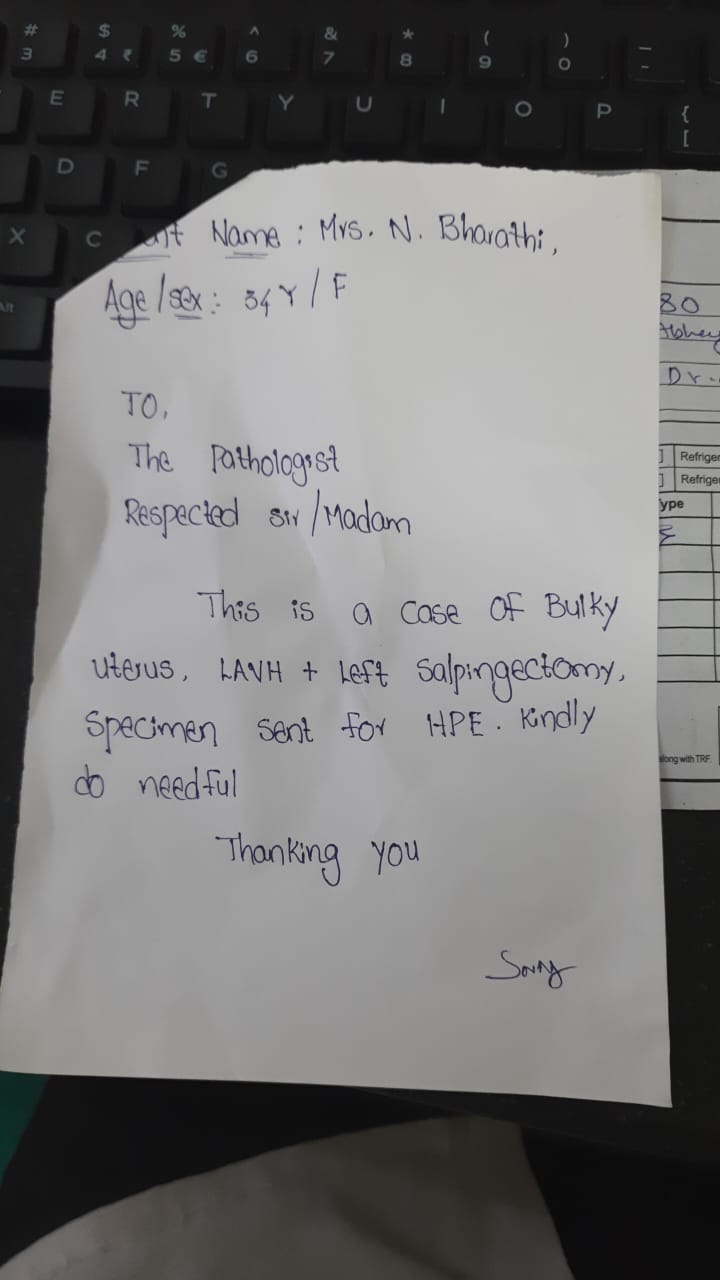 # $ % ^ & * ( )
3 4 ₹ 5 € 6 7 8 9 0
E R T Y U I O P { [
D F G
X C
Alt
Name : Mrs. N. Bharathi,
Age/sex: 34 Y/F
TO,
The Pathologist
Respected sir/Madam
This is a case of Bulky
uterus, LAVH + Left salpingectomy,
specimen sent for HPE. Kindly
do needful
Thanking you
80
Abhey
Dr.
Refriger
Refriger
ype
long with TRF.